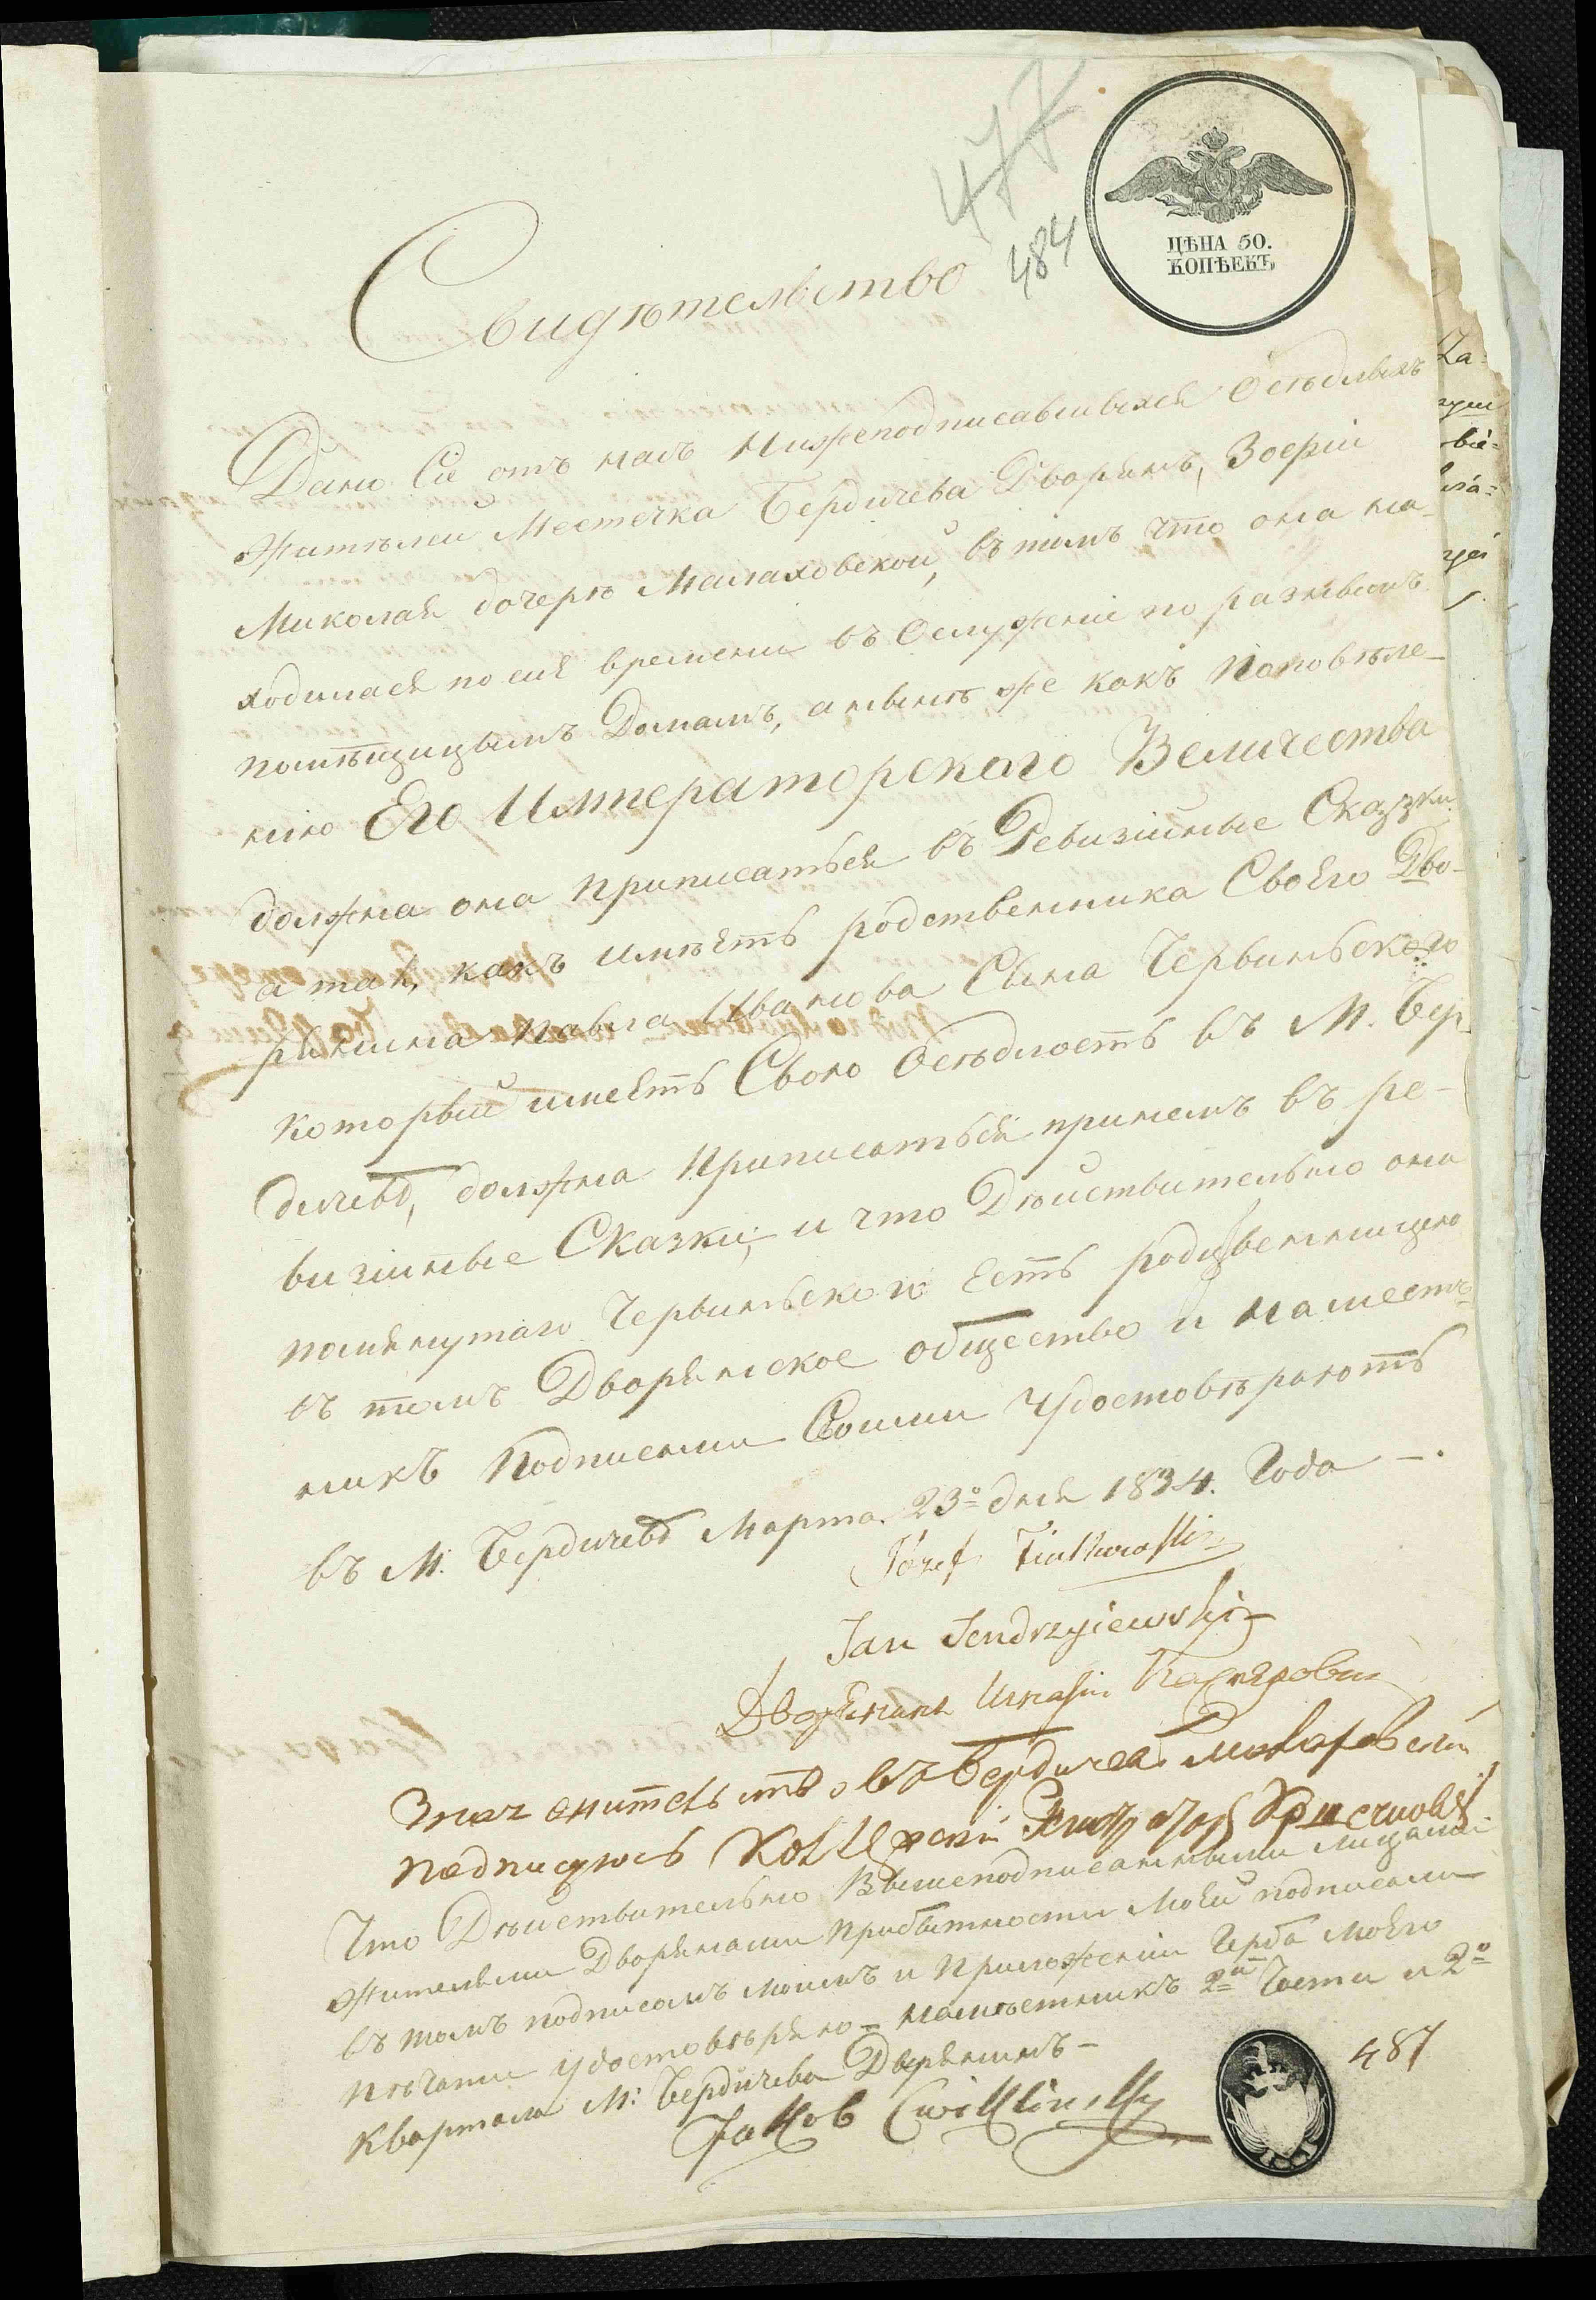 477
484
ЦѢНА 50.
КОПѢЕКЪ
Свидѣтельство
Дано Сіе отъ насъ Нижеподписавшыхся Осѣдлыхъ
жителей Местечка Бердичева Дворянъ, Зофіи
Миколая дочерѣ Малаховской, въ томъ что она на-
ходилася по сия времени въ Služеніе по разнымъ
помѣщицымъ Домамъ, а нынѣ же какъ Поповѣле-
нію Его Императорскаго Величества
должна она приписаться въ Ревизійные Сказки
а так, какъ имѣетъ родственника Своего Дво-
рянина Павла Иванова Сына Червинського
который имеетъ Свою Осѣдлость въ М. Бер-
дичевѣ, должна приписаться при немъ въ ре-
визійные Сказки, и что Дѣйствительно она
помянутаго Червинського Есть родственницею
въ томъ Дворянское общество и намест-
никъ Подписами Своими Удостовѣряютъ
въ М. Бердичевѣ Марта 23º дня 1834. Года —.
Józef
Jan Jendrzyiewski
Дворянинъ
подписуюсь
Что Дѣйствительно Вышеподписанными лицами
жителями Дворянами Прибытности Моей подписали
въ томъ подписомъ моимъ и Приложеніи Герба Моего
Печати удостовѣряю — намѣстникъ 2й Части и 2º
Квартала М: Бердичева Дворянинъ —
Jakób Cwikliński
487